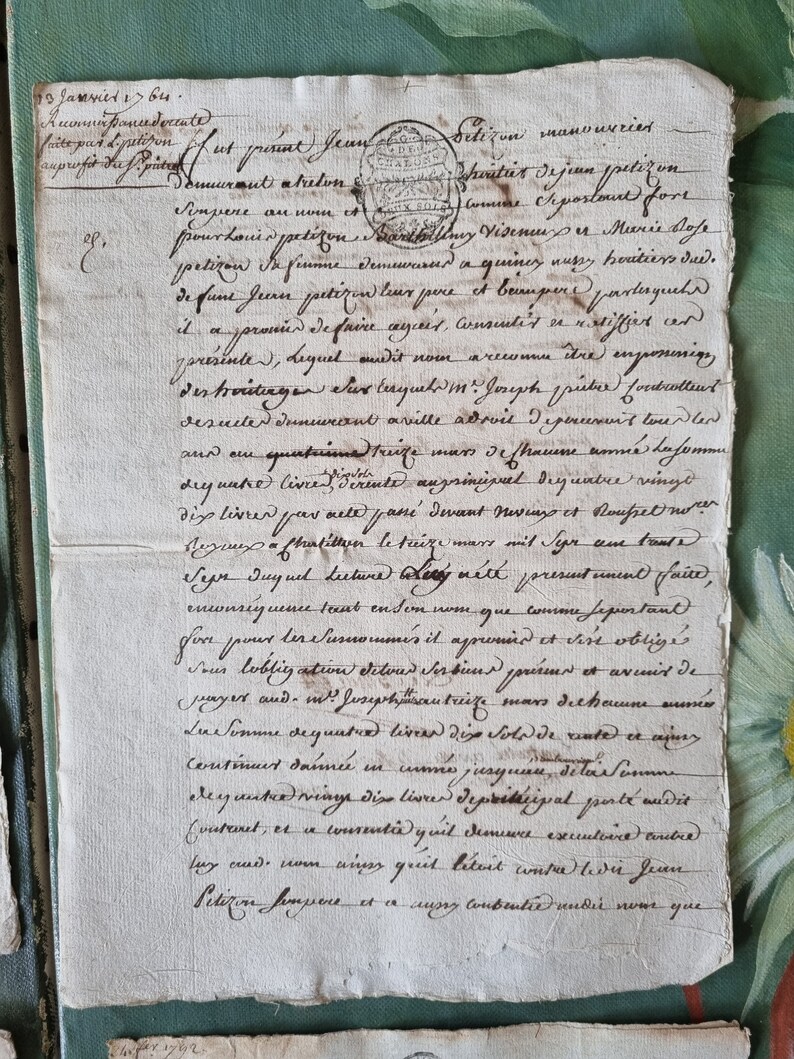 13 Janvier 1764.
Reconnaissance de rente
faite par L. petizon
au profit du Sr. pietre
G
DE
CHALONS
DEUX SOLS
fut présent Jean Petizon manouvrier
demeurant a heritier de jean petizon
son pere au nom et comme se portant fort
pour Louis petizon Barthelemy Viseneux et Marie Rose
petizon sa femme demeurans a quincy aussy heritiers dud.
defunt Jean petizon leur pere et beaupere par lesquels
il a promis de faire agréer, consentir et ratiffier ces
présente, Lequel audit nom a reconnu être en possession
des heritages sur lesquels Me. Joseph pietre Controlleur
des actes demeurant a ville a droit de percevoir tous les
ans au treize mars de Chacune année La somme
de quatre livres dix sols de rente au principal de quatre vingt
dix livres par acte passé devant et Roussel nores.
Royaux a Chatillon le treize mars mil Sept cent trente
Sept duquel lecture a été presentement faite,
en conséquence tant en son nom que comme se portant
fort pour les susnommés il a promis et s'est obligé
sous l'obligation de tous ses biens présens et avenir de
payer aud. Me. Joseph au treize mars de chacune année
La somme de quatre livres dix sols de rente et ainsy
continuer d'année en année jusqu'au de la somme
de quatre vingt dix livres de principal porté audit
Contract, et a consentie qu'il demeure executoire contre
luy aud. nom ainsy qu'il l'étoit contre ledit Jean
Petizon son pere et a aussy consentie audit nom que